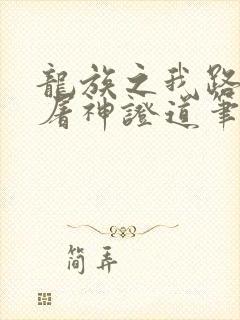 龍族之我路
屠神證道筆
簡弄